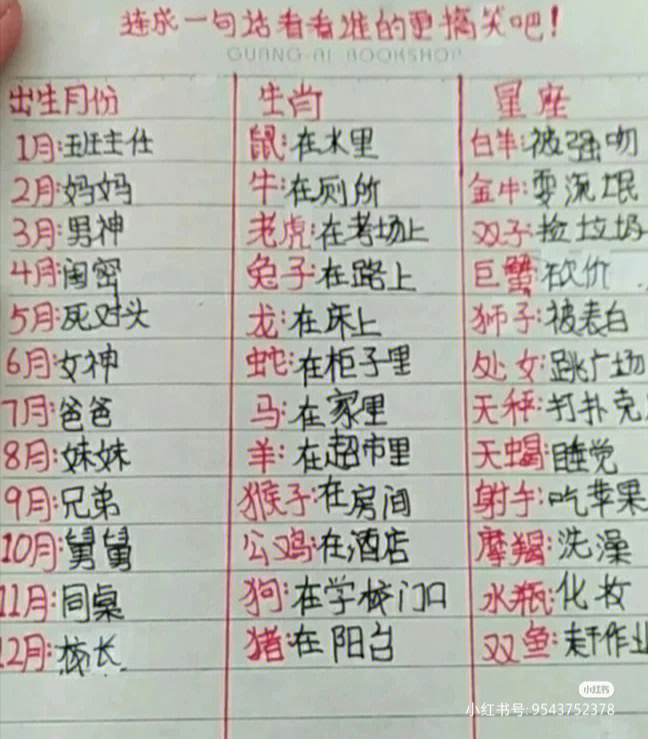 连成一句话看看谁的更搞笑吧!
GUANG AI BOOKSHOP
出生月份 生肖 星座
1月:班主任 鼠:在水里 白羊:被强吻
2月:妈妈 牛:在厕所 金牛:耍流氓
3月:男神 老虎:在考场上 双子:捡垃圾
4月:闺密 兔子:在路上 巨蟹:砍价
5月:死对头 龙:在床上 狮子:被表白
6月:女神 蛇:在柜子里 处女:跳广场
7月:爸爸 马:在家里 天秤:打扑克
8月:妹妹 羊:在超市里 天蝎:睡觉
9月:兄弟 猴子:在房间 射手:吃苹果
10月:舅舅 公鸡:在酒店 摩羯:洗澡
11月:同桌 狗:在学校门口 水瓶:化妆
12月:校长 猪:在阳台 双鱼:赶作业
小红书
小红书号:9543752378